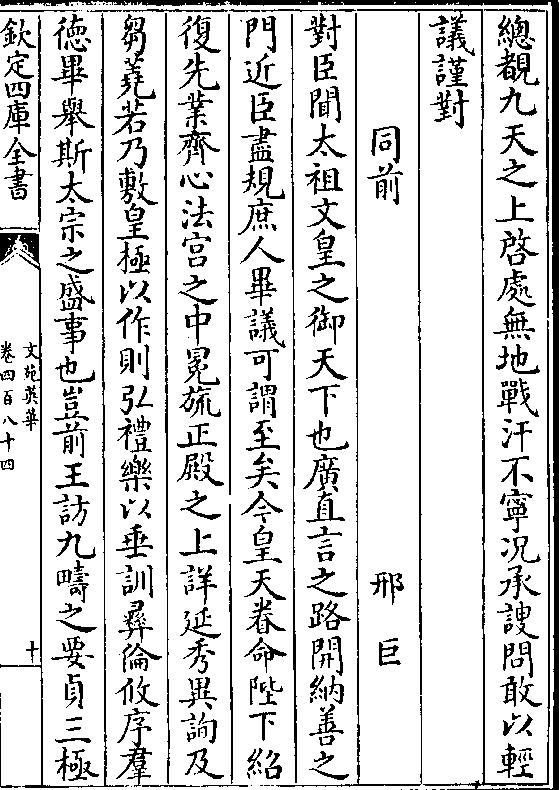 總覩九天之上啓處無地戰汗不寧况承謏問敢以輕
議謹對
同前 邢巨
對臣聞太祖文皇之御天下也廣直言之路開納善之
門近臣盡規庶人畢議可謂至矣今皇天眷命陛下紹
復先業齊心法宫之中冕旒正殿之上詳延秀異詢及
芻蕘若乃敷皇極以作則弘禮樂以垂訓彛倫攸序羣
徳畢舉斯太宗之盛事也豈前王訪九疇之要貞三極
欽定四庫全書
文苑英華
卷四百八十四
十